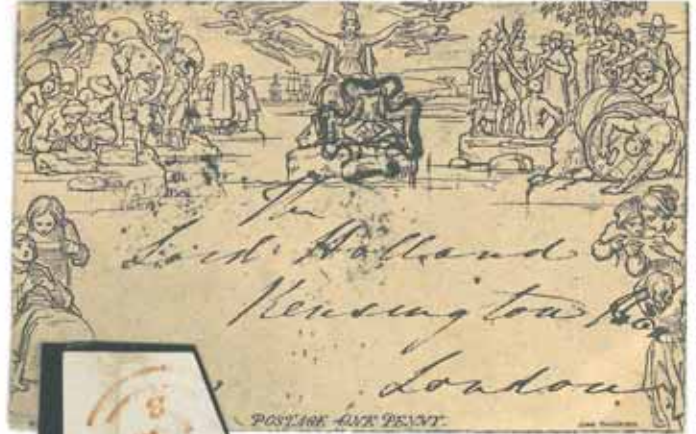 The
Lord Holland
Kensington
London
POSTAGE ONE PENNY.
8